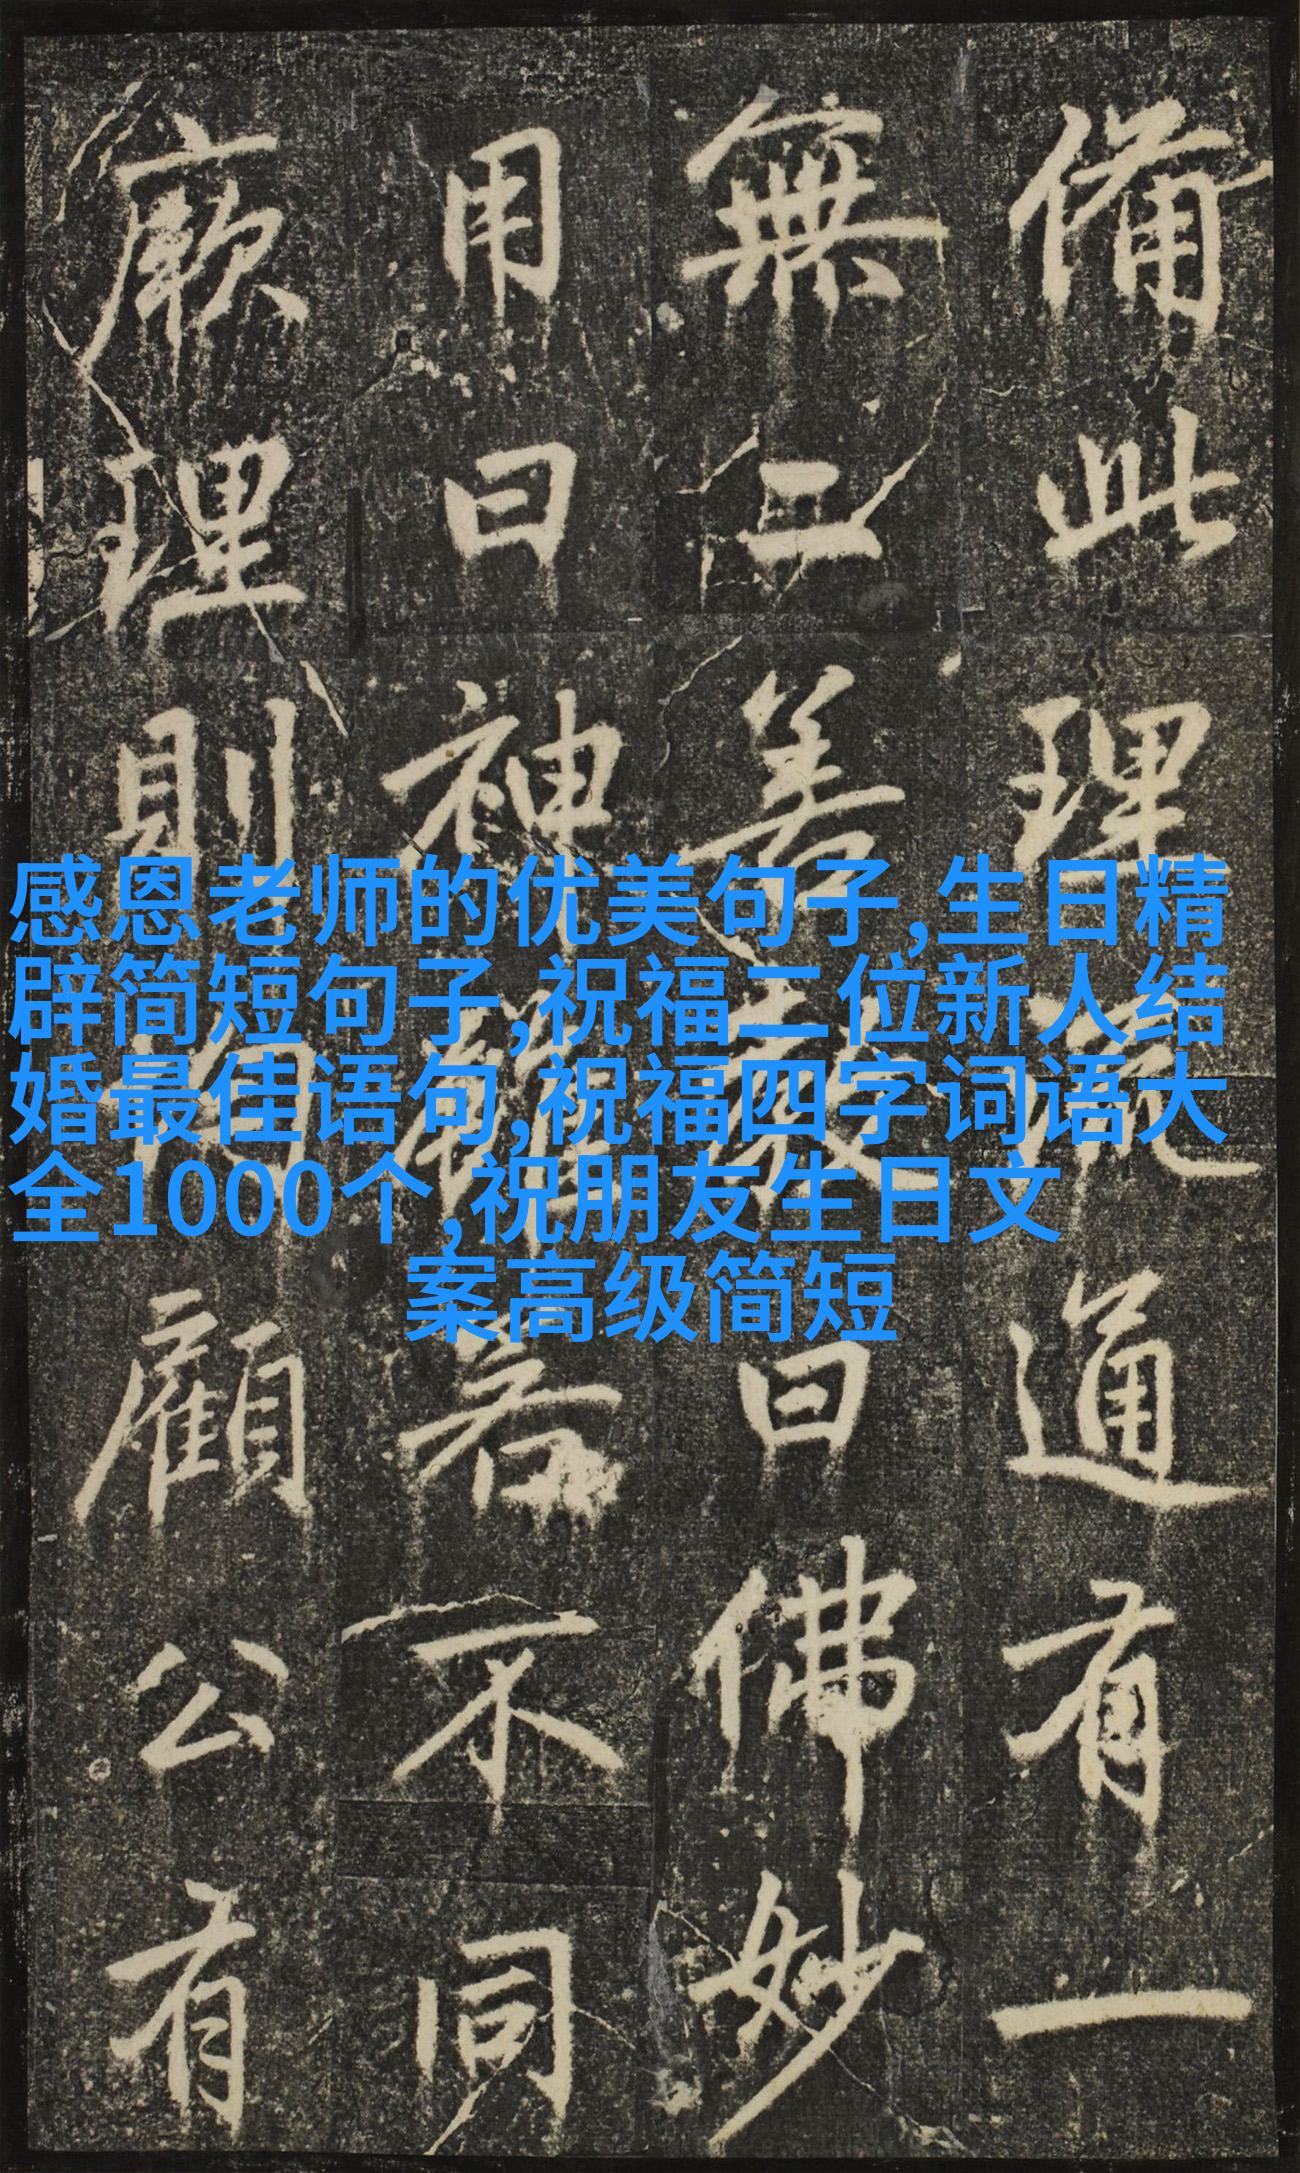 感恩老师的优美句子,生日精
辟简短句子,祝福二位新人结
婚最佳语句,祝福四字词语大
全1000个,祝朋友生日文
案高级简短
備此理通有一
無二善曰佛妙
用曰神若不同
厥理則顧公有